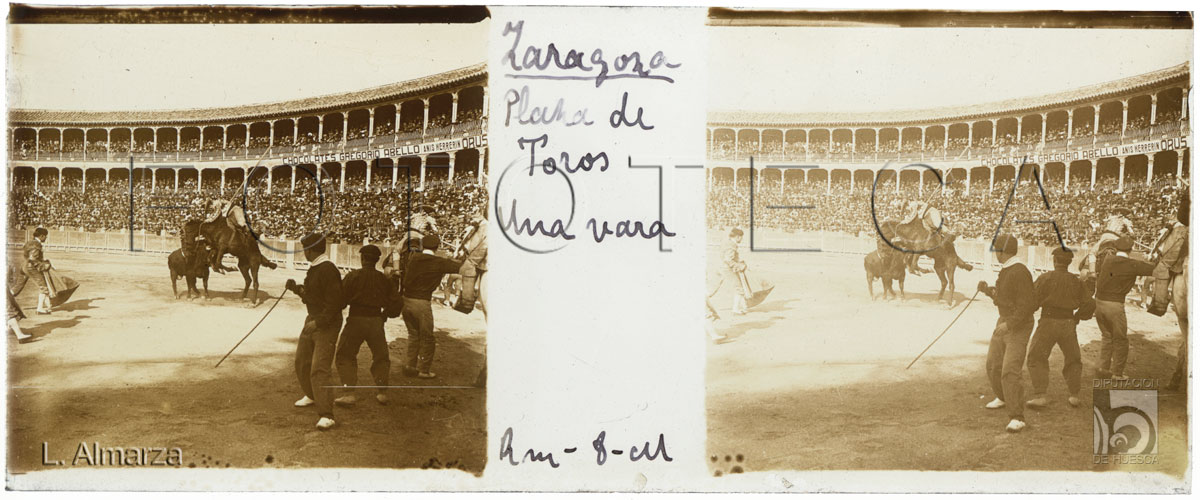 Zaragoza
Plaza de
Toros
Una vara
CHOCOLATES GREGORIO ABELLO ANIS HERRERIN ORUS
CHOCOLATES GREGORIO ABELLO ANIS HERRERIN ORUS
FOTOTECA
L. Almarza
DIPUTACIÓN
DE HUESCA